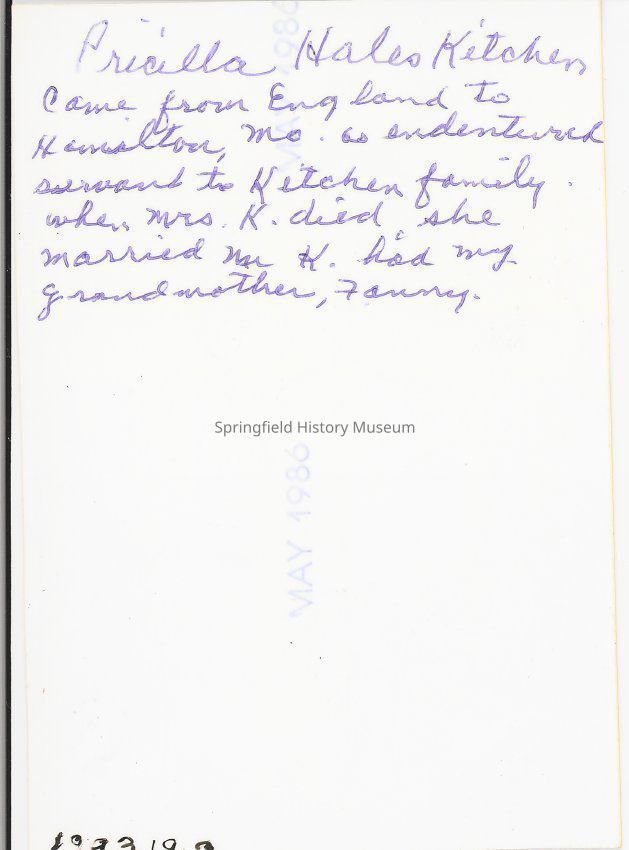 Pricilla Hales Kitchen
Came from England to
Hamilton, Mo. as endentured
servant to Kitchen family.
when Mrs. K. died, she
married Mr K. had my
grandmother, Fanny.
Springfield History Museum
MAY 1986
MAY 1986